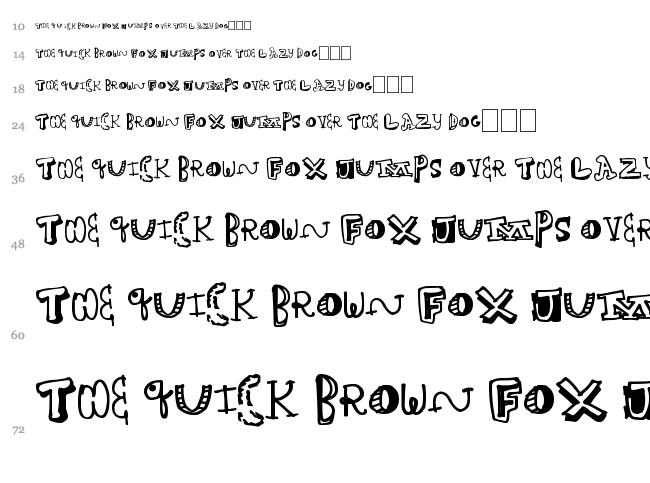 10 THE QUICK BROWN FOX JUMPS OVER THE LAZY DOG
14 THE QUICK BROWN FOX JUMPS OVER THE LAZY DOG
18 THE QUICK BROWN FOX JUMPS OVER THE LAZY DOG
24 THE QUICK BROWN FOX JUMPS OVER THE LAZY DOG
36 THE QUICK BROWN FOX JUMPS OVER THE LAZY
48 THE QUICK BROWN FOX JUMPS OVER
60 THE QUICK BROWN FOX JUM
72 THE QUICK BROWN FOX J